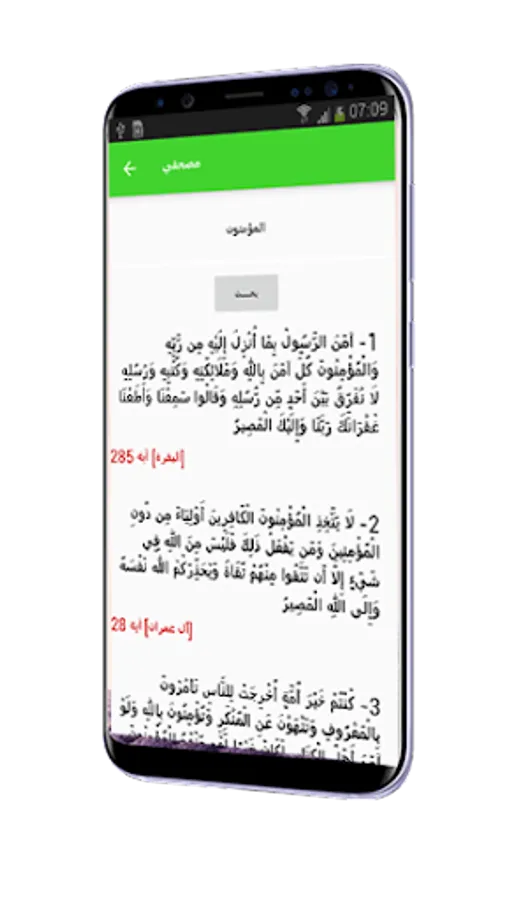 07:09
مصحفي
المؤمنون
بحث
1- آمَنَ الرَّسُولُ بِمَا أُنزِلَ إِلَيْهِ مِن رَّبِّهِ
وَالْمُؤْمِنُونَ كُلٌّ آمَنَ بِاللَّهِ وَمَلَائِكَتِهِ وَكُتُبِهِ وَرُسُلِهِ
لَا نُفَرِّقُ بَيْنَ أَحَدٍ مِّن رُّسُلِهِ وَقَالُوا سَمِعْنَا وَأَطَعْنَا
غُفْرَانَكَ رَبَّنَا وَإِلَيْكَ الْمَصِيرُ
[البقرة] آية 285
2- لَا يَتَّخِذِ الْمُؤْمِنُونَ الْكَافِرِينَ أَوْلِيَاءَ مِن دُونِ
الْمُؤْمِنِينَ وَمَن يَفْعَلْ ذَلِكَ فَلَيْسَ مِنَ اللَّهِ فِي
شَيْءٍ إِلَّا أَن تَتَّقُوا مِنْهُمْ تُقَاةً وَيُحَذِّرُكُمُ اللَّهُ نَفْسَهُ
وَإِلَى اللَّهِ الْمَصِيرُ
[آل عمران] آية 28
3- كُنتُمْ خَيْرَ أُمَّةٍ أُخْرِجَتْ لِلنَّاسِ تَأْمُرُونَ
بِالْمَعْرُوفِ وَتَنْهَوْنَ عَنِ الْمُنكَرِ وَتُؤْمِنُونَ بِاللَّهِ وَلَوْ